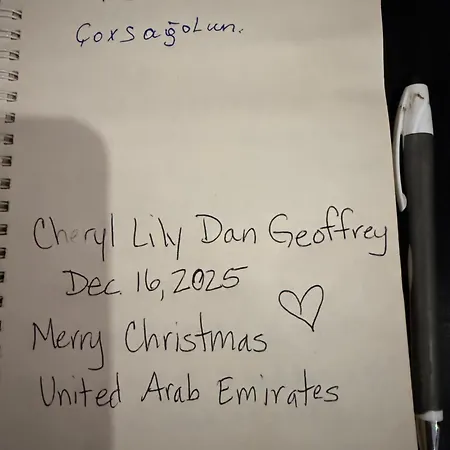 Çox sağolun.
Cheryl Lily Dan Geoffrey
Dec. 16, 2025
Merry Christmas
United Arab Emirates